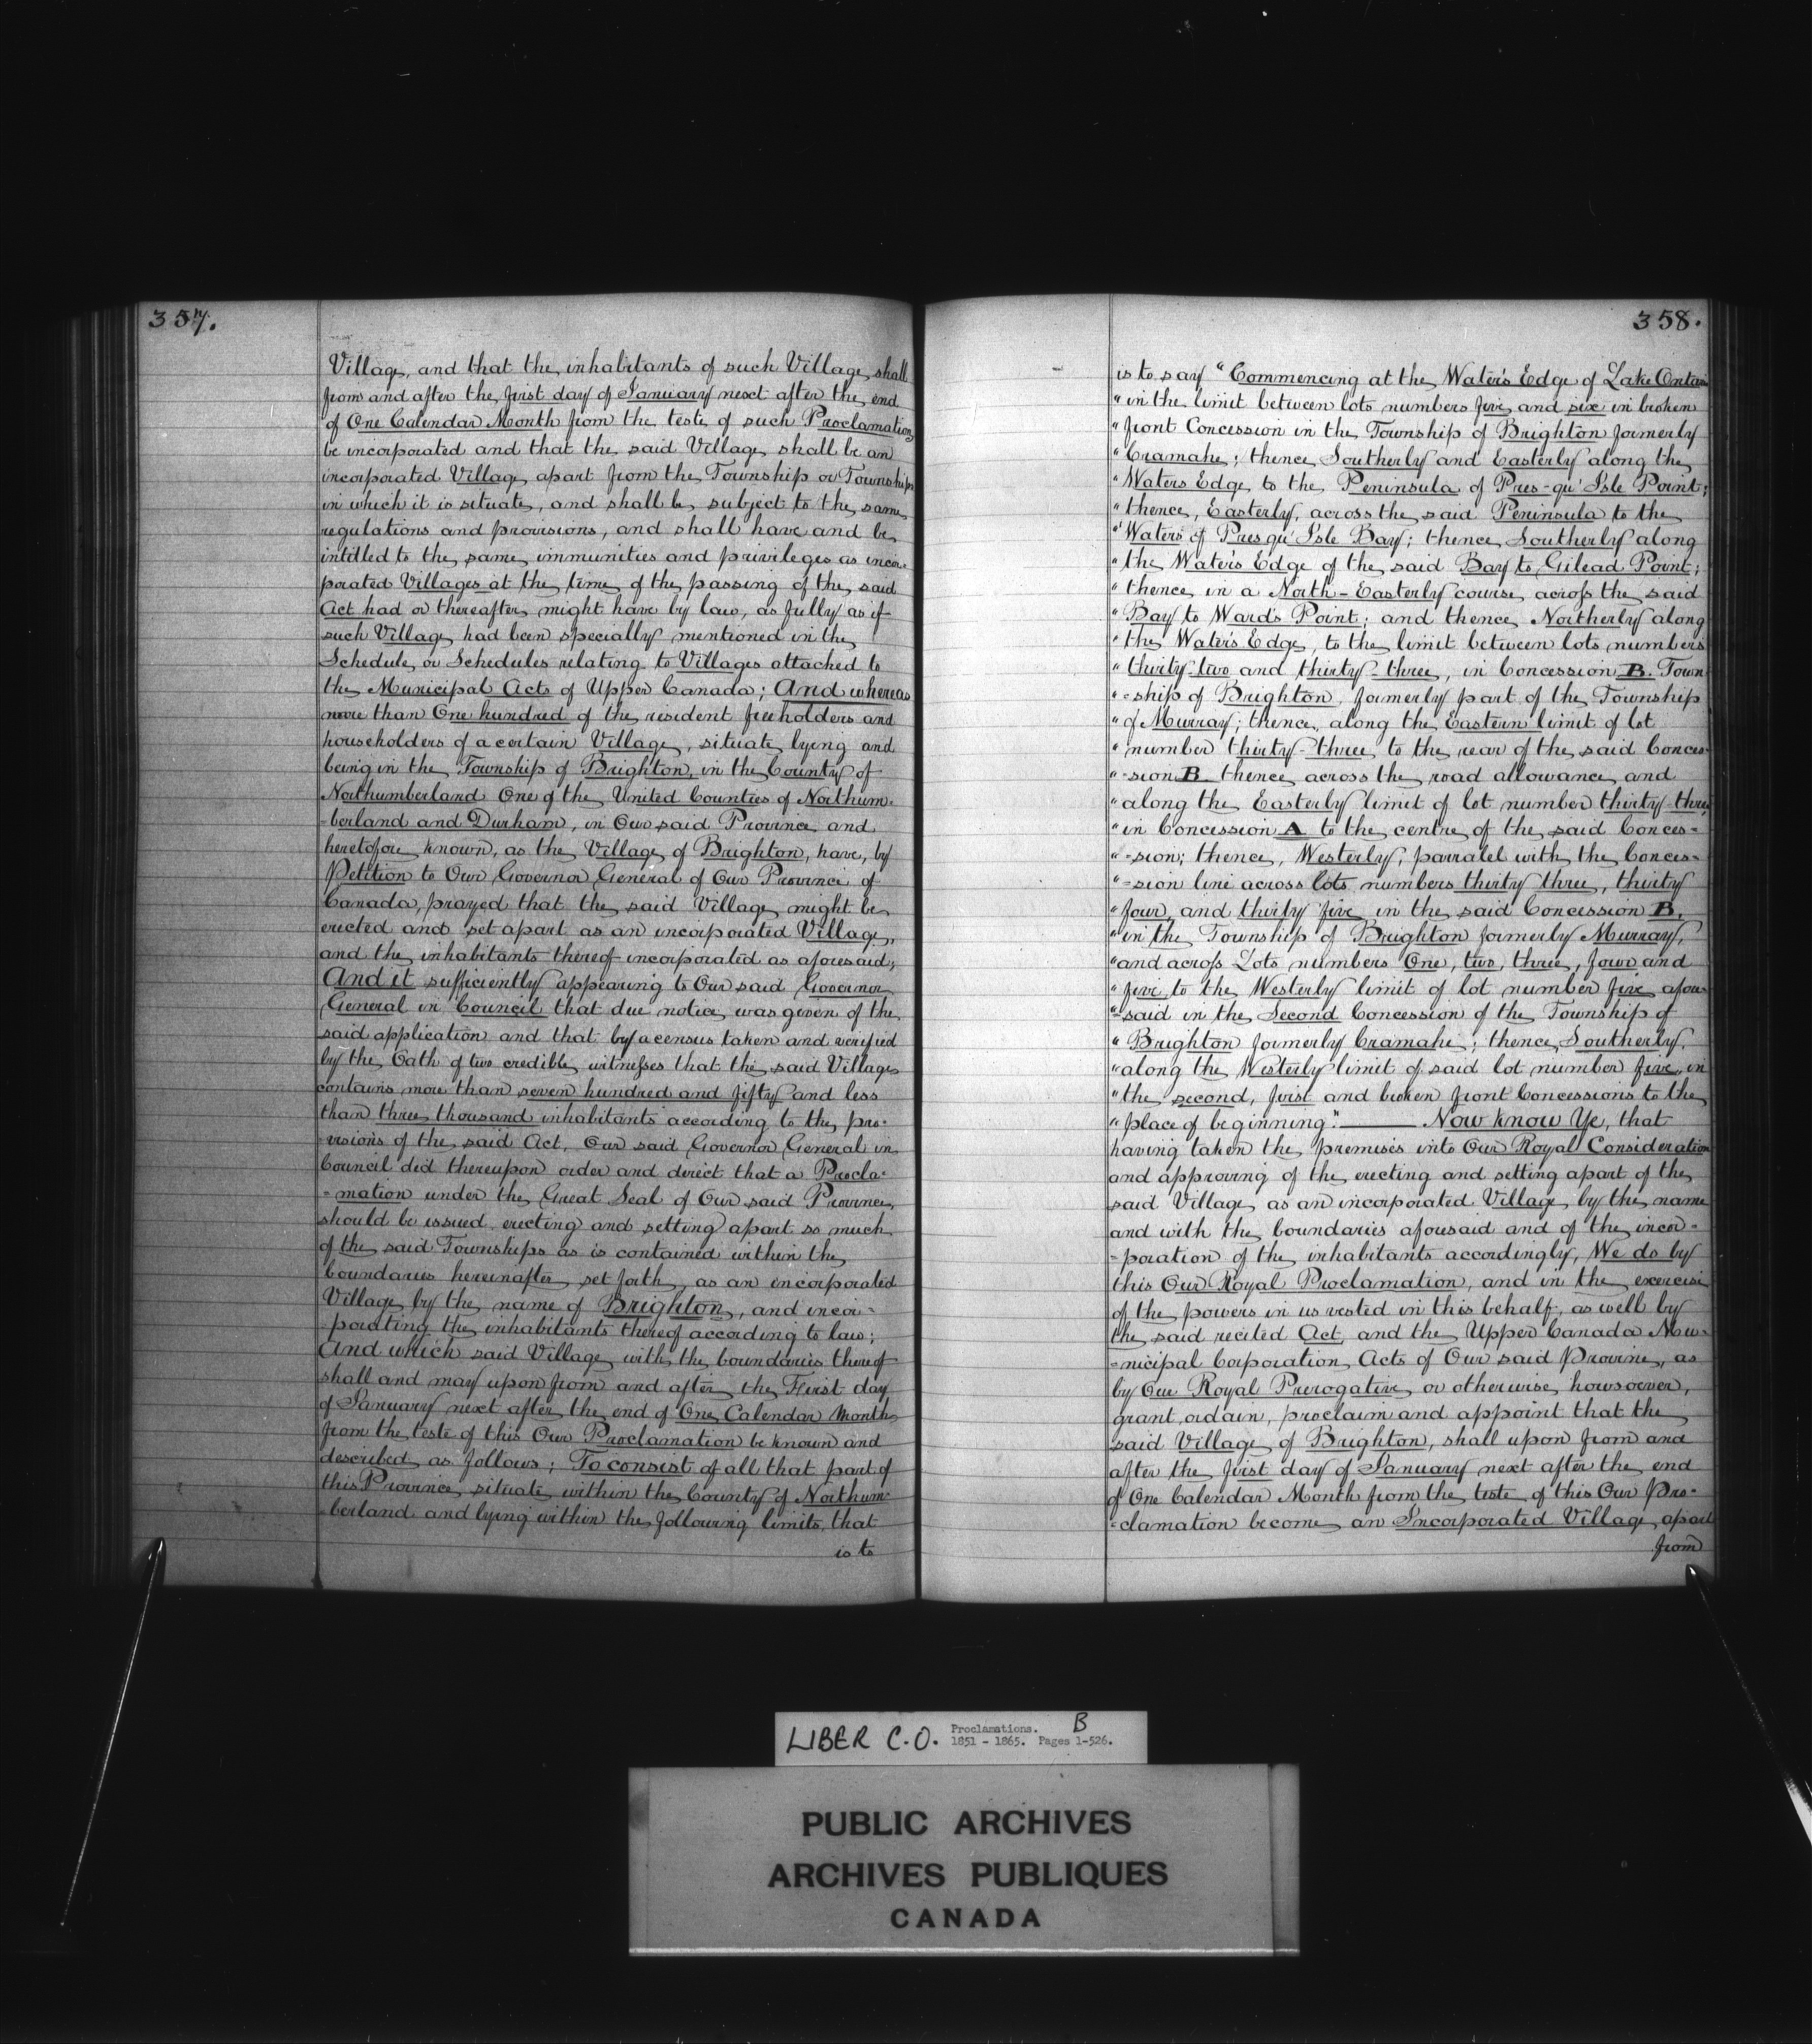 357.
Village, and that the inhabitants of such Village shall
from and after the first day of January next after the end
of One Calendar Month from the teste of such Proclamation
be incorporated and that the said Village shall be an
incorporated Village apart from the Township or Townships
in which it is situate, and shall be subject to the same
regulations and provisions, and shall have and be
intitled to the same immunities and privileges as incor-
porated Villages at the time of the passing of the said
Act had or thereafter might have by law, as fully as if
such Village had been specially mentioned in the
Schedule or Schedules relating to Villages attached to
the Municipal Acts of Upper Canada; And whereas
more than One hundred of the resident freeholders and
householders of a certain Village, situate lying and
being in the Township of Brighton, in the County of
Northumberland One of the United Counties of Northum-
-berland and Durham, in Our said Province and
heretofore known, as the Village of Brighton, have, by
Petition to Our Governor General of Our Province of
Canada, prayed that the said Village might be
erected and set apart as an incorporated Village,
and the inhabitants thereof incorporated as aforesaid;
And it sufficiently appearing to Our said Governor
General in Council that due notice was given of the
said application and that by a census taken and verified
by the Oath of two credible witnesses that the said Village
contains more than seven hundred and fifty and less
than three thousand inhabitants according to the pro-
-visions of the said Act, Our said Governor General in
Council did thereupon order and direct that a Procla-
-mation under the Great Seal of Our said Province,
should be issued erecting and setting apart so much
of the said Townships as is contained within the
boundaries hereinafter set forth, as an incorporated
Village by the name of Brighton, and incor-
-porating the inhabitants thereof according to law;
And which said Village with the boundaries thereof
shall and may upon from and after the First day
of January next after the end of One Calendar Month
from the teste of this Our Proclamation be known and
described as follows; To consist of all that part of
this Province, situate within the County of Northum-
-berland and lying within the following limits, that
is to
358.
is to say "Commencing at the Water's Edge of Lake Ontario
"in the limit between lots numbers five and six in broken
"front Concession in the Township of Brighton formerly
"Cramahe; thence Southerly and Easterly along the
"Waters Edge to the Peninsula of Pres-qu' Isle Point;
"thence, Easterly, across the said Peninsula to the
"Waters of Presqu' Isle Bay; thence Southerly along
"the Water's Edge of the said Bay to Gilead Point;
"thence in a North-Easterly course across the said
"Bay to Ward's Point; and thence Northerly along
"the Water's Edge, to the limit between lots numbers
"thirty-two and thirty-three, in Concession B. Town
"-ship of Brighton, formerly part of the Township
"of Murray; thence along the Eastern limit of lot
"number thirty-three to the rear of the said Conces-
"-sion B thence across the road allowance and
"along the Easterly limit of lot number thirty-three
"in Concession A to the centre of the said Conces-
"-sion; thence, Westerly, parralel with the Conces-
"-sion line across lots numbers thirty three, thirty
"four, and thirty five in the said Concession B,
"in the Township of Brighton formerly Murray,
"and across Lots numbers One, two, three, four and
"five to the Westerly limit of lot number five afore
"-said in the Second Concession of the Township of
"Brighton formerly Cramahe; thence, Southerly,
"along the Westerly limit of said lot number five, in
"the second, first and broken front Concessions to the
"place of beginning." —— Now know Ye, that
having taken the premises into Our Royal Consideration
and approving of the erecting and setting apart of the
said Village as an incorporated Village by the name
and with the boundaries aforesaid and of the incor-
-poration of the inhabitants accordingly, We do by
this Our Royal Proclamation, and in the exercise
of the powers in us vested in this behalf, as well by
the said recited Act, and the Upper Canada Mu-
-nicipal Corporation Acts of Our said Province, as
by Our Royal Prerogative or otherwise howsoever,
grant, ordain, proclaim and appoint that the
said Village of Brighton, shall upon from and
after the first day of January next after the end
of One Calendar Month from the teste of this Our Pro-
-clamation become an Incorporated Village, apart
from
LIBER C.O. Proclamations. B
1851 - 1865. Pages 1-526.
PUBLIC ARCHIVES
ARCHIVES PUBLIQUES
CANADA